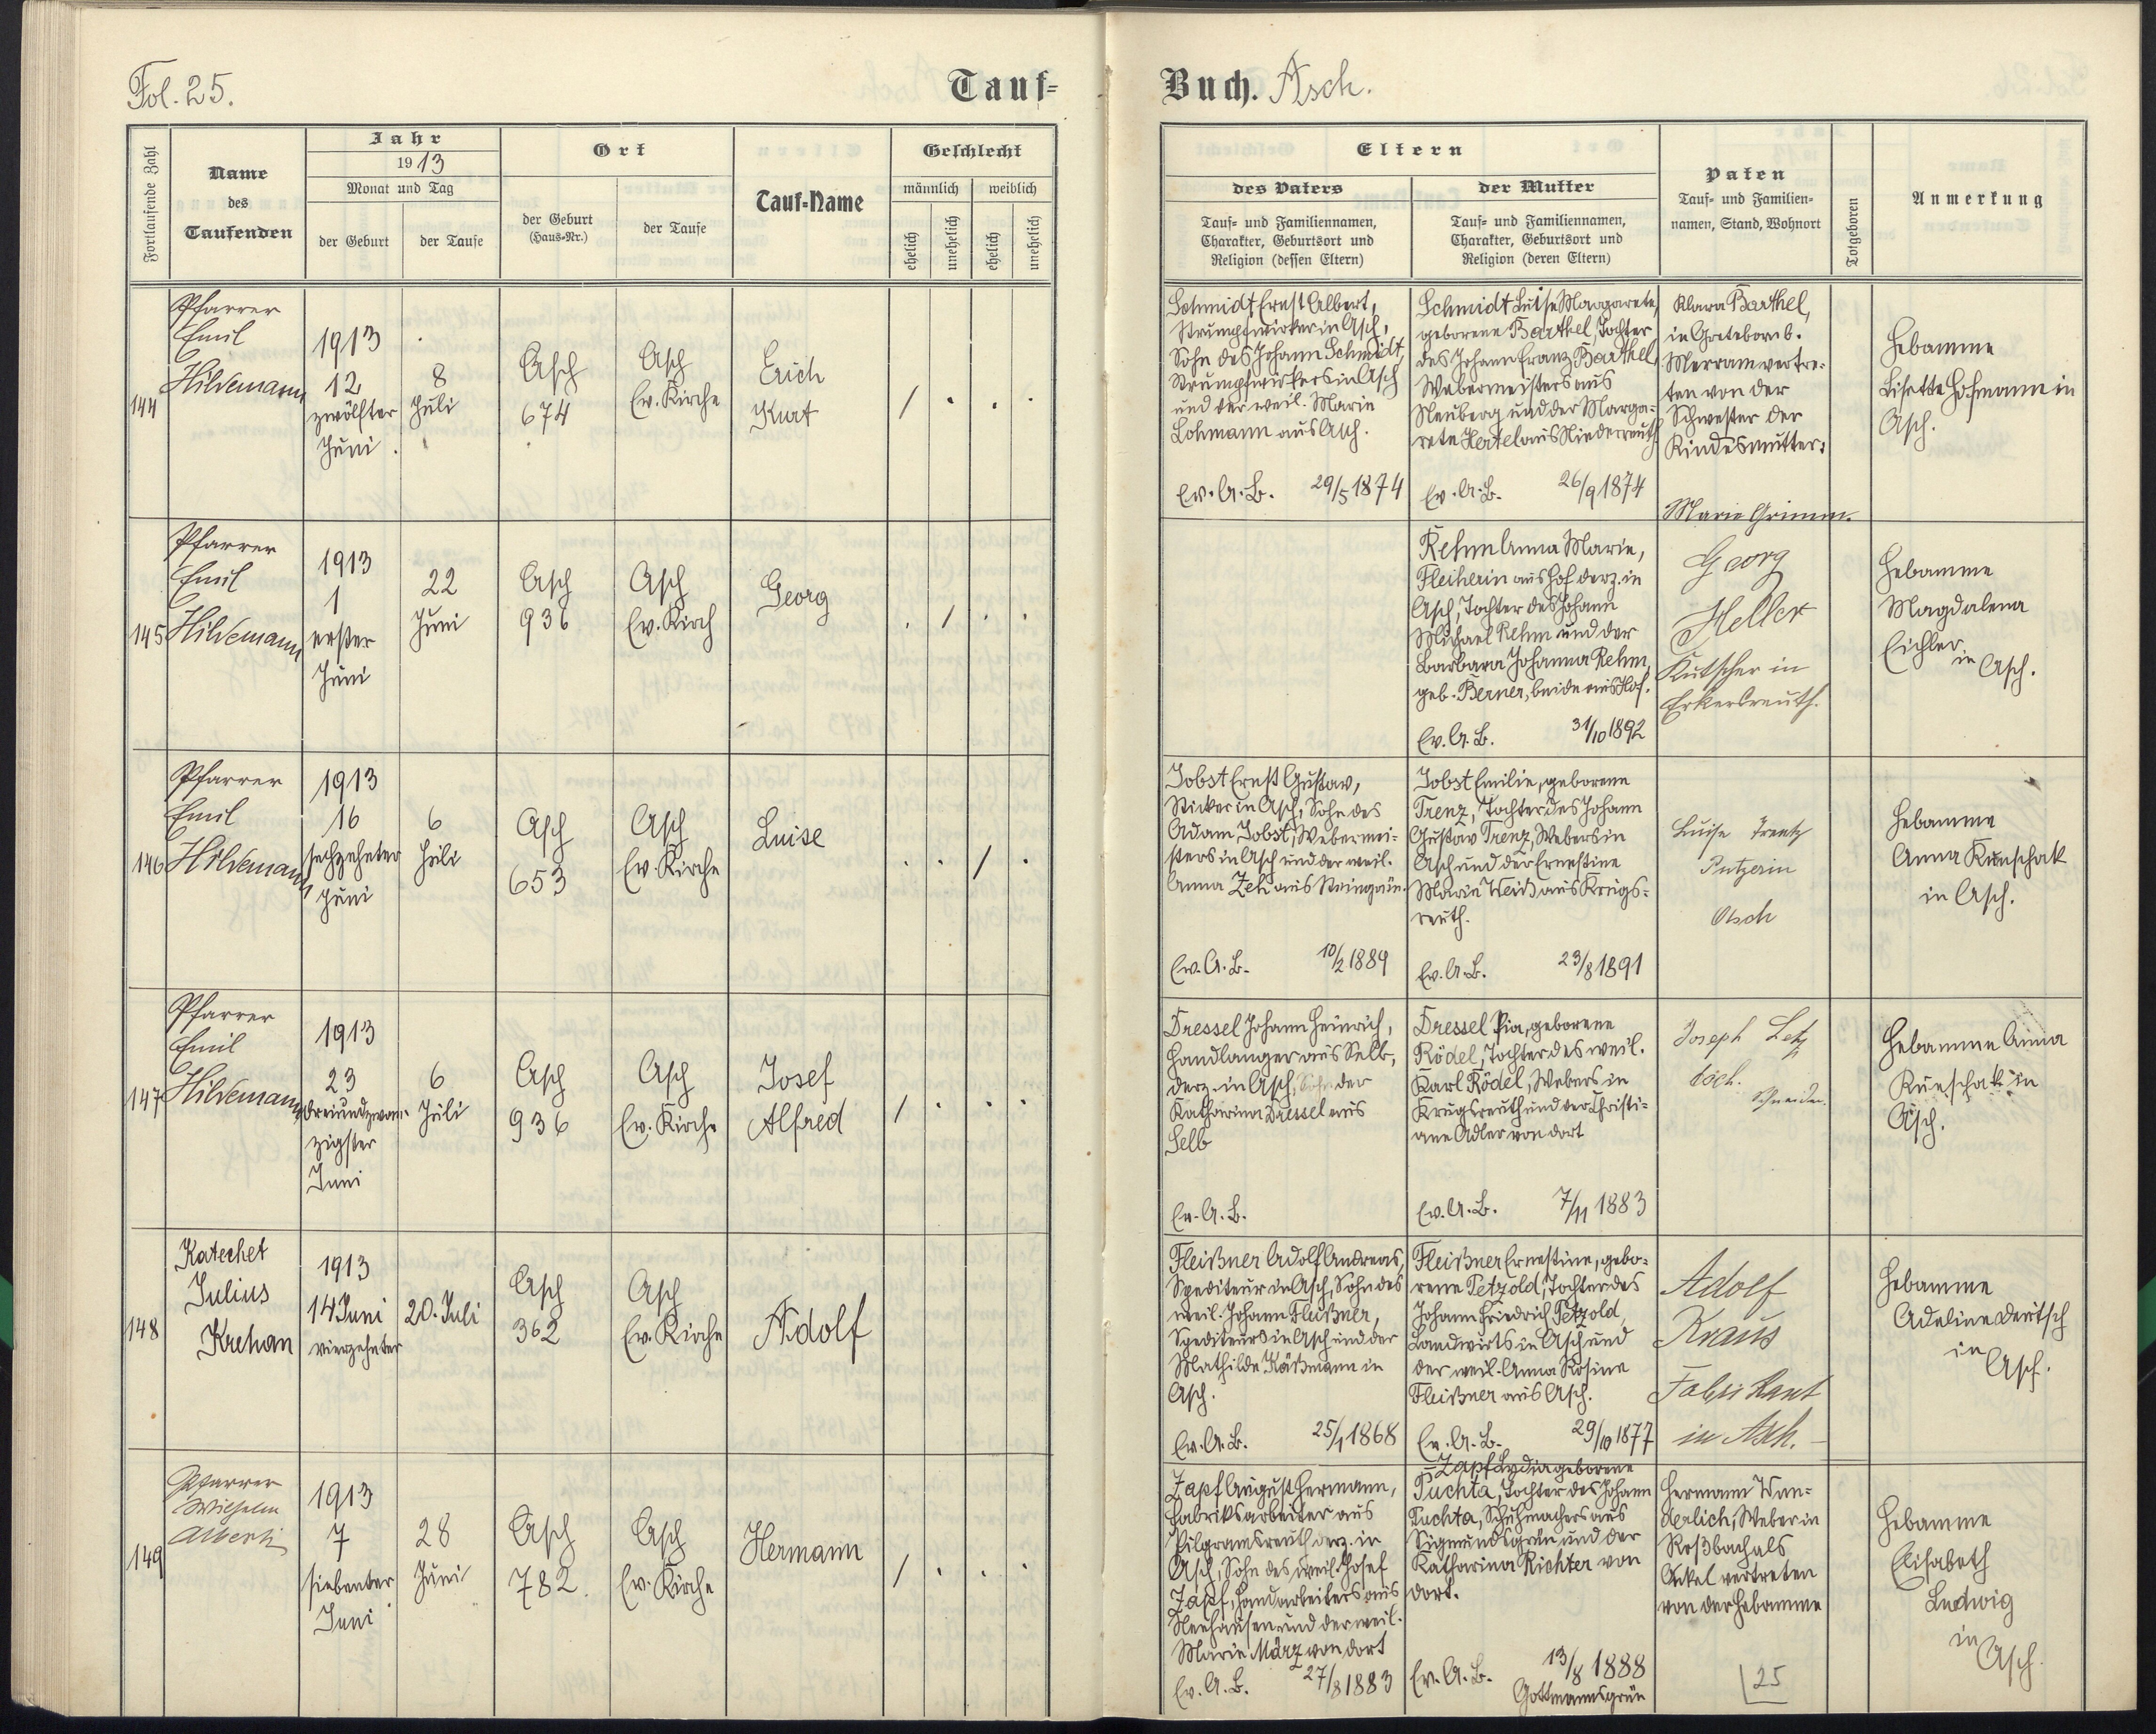 Fol. 25.
Tauf-
Buch. Asch.
Fortlaufende Zahl
Name
des
Taufenden
Jahr
1913
Monat und Tag
der Geburt
der Taufe
Ort
der Geburt
(Haus-Nr.)
der Taufe
Tauf-Name
Geschlecht
männlich
weiblich
ehelich
unehelich
ehelich
unehelich
Eltern
des Vaters
Tauf- und Familiennamen,
Charakter, Geburtsort und
Religion (dessen Eltern)
der Mutter
Tauf- und Familiennamen,
Charakter, Geburtsort und
Religion (deren Eltern)
Paten
Tauf- und Familien-
namen, Stand, Wohnort
Totgeboren
Anmerkung
144
Pfarrer
Emil
Hildemann
1913
12
zwölfter
Juni
8
Juli
Asch
674
Asch
Ev. Kirche
Erich
Kurt
/ . . .
Schmidt Ernst Albert,
Strumpfwirker in Asch,
Sohn des Johann Schmidt,
Strumpfwirkers in Asch
und der weil. Marie
Lohmann aus Asch.
Ev. A. B. 29/5 1874
Schmidt Luise Margarete,
geborene Barthel, Tochter
des Johann Franz Barthel,
Webermeisters aus
Neuberg und der Marga-
rete Hertel aus Niederreuth
Ev. A. B. 26/9 1874
Klara Barthel,
in b.
vertre-
ten von der
Schwester der
Kindesmutter:
Marie Grimm.
Hebamme
Lisette Hofmann in
Asch.
145
Pfarrer
Emil
Hildemann
1913
1
erster
Juni
22
Juni
Asch
936
Asch
Ev. Kirch
Georg
. / . .
Rehm Anna Marie,
aus Hof derz. in
Asch, Tochter des Johann
Michael Rehm und der
Barbara Johanna Rehm,
geb. Berner, beide aus Hof.
Ev. A. B. 31/10 1892
Georg
Heller
Kutscher in
Erkersreuth.
Hebamme
Magdalena
Eichler
in Asch.
146
Pfarrer
Emil
Hildemann
1913
16
sechzehnter
Juni
6
Juli
Asch
653
Asch
Ev. Kirche
Luise
. . / .
Jobst Ernst Gustav,
Sticker in Asch, Sohn des
Adam Jobst, Webermei-
sters in Asch und der weil.
Anna Zeh aus Steingrün.
Ev. A. B. 10/2 1889
Jobst Emilie, geborene
Trenz, Tochter des Johann
Gustav Trenz, Webers in
Asch und der Ernestine
Marie Weiß aus Krugs-
reuth.
Ev. A. B. 23/8 1891
Luise Trentz
Putzerin
Asch
Hebamme
Anna Künschak
in Asch.
147
Pfarrer
Emil
Hildemann
1913
23
dreiundzwan-
zigster
Juni
6
Juli
Asch
936
Asch
Ev. Kirche
Josef
Alfred
/ . . .
Dressel Johann Heinrich,
Handlanger aus Selb,
derz. in Asch, Sohn der
Katharina Dressel aus
Selb
Ev. A. B.
Dressel Pia, geborene
Rödel, Tochter des weil.
Karl Rödel, Webers in
Krugsreuth und der Christi-
ane Adler von dort
Ev. A. B. 7/11 1883
Joseph Letz
Asch.
Schneider.
Hebamme Anna
Künschak in
Asch.
148
Katechet
Julius
Krehan
1913
14 Juni
vierzehnter
20. Juli
Asch
362
Asch
Ev. Kirche
Adolf
Fleißner Adolf Andreas,
Spediteur in Asch, Sohn des
weil. Johann Fleißner,
Spediteurs in Asch und der
Mathilde Käßmann in
Asch.
Ev. A. B. 25/1 1868
Fleißner Ernestine, gebo-
rene Petzold, Tochter des
Johann Friedrich Petzold,
Landwirts in Asch und
der weil. Anna Rosine
Fleißner aus Asch.
Ev. A. B. 29/10 1877
Adolf
Kraus
Fabrikant
in Asch.
Hebamme
Adeline Deutsch
in
Asch.
149
Pfarrer
Wilhelm
Alberti
1913
7
siebenter
Juni
28
Juni
Asch
782.
Asch
Ev. Kirche
Hermann
/ . . .
Zapf August Hermann,
Fabriksarbeiter aus
Pilgramsreuth derz. in
Asch, Sohn des weil. Josef
Zapf, Handarbeiters aus
Neuhausen und der weil.
Marie März von dort
Ev. A. B. 27/8 1883
Zapf Lydia geborene
Puchta, Tochter des Johann
Puchta, Schuhmachers aus
Sigmundsgrün und der
Katharina Richter von
dort.
Ev. A. B. 13/8 1888
Gottmannsgrün
Hermann Wun-
derlich, Weber in
Roßbach als
Onkel vertreten
von der Hebamme
25
Hebamme
Elisabeth
Ludwig
in
Asch.